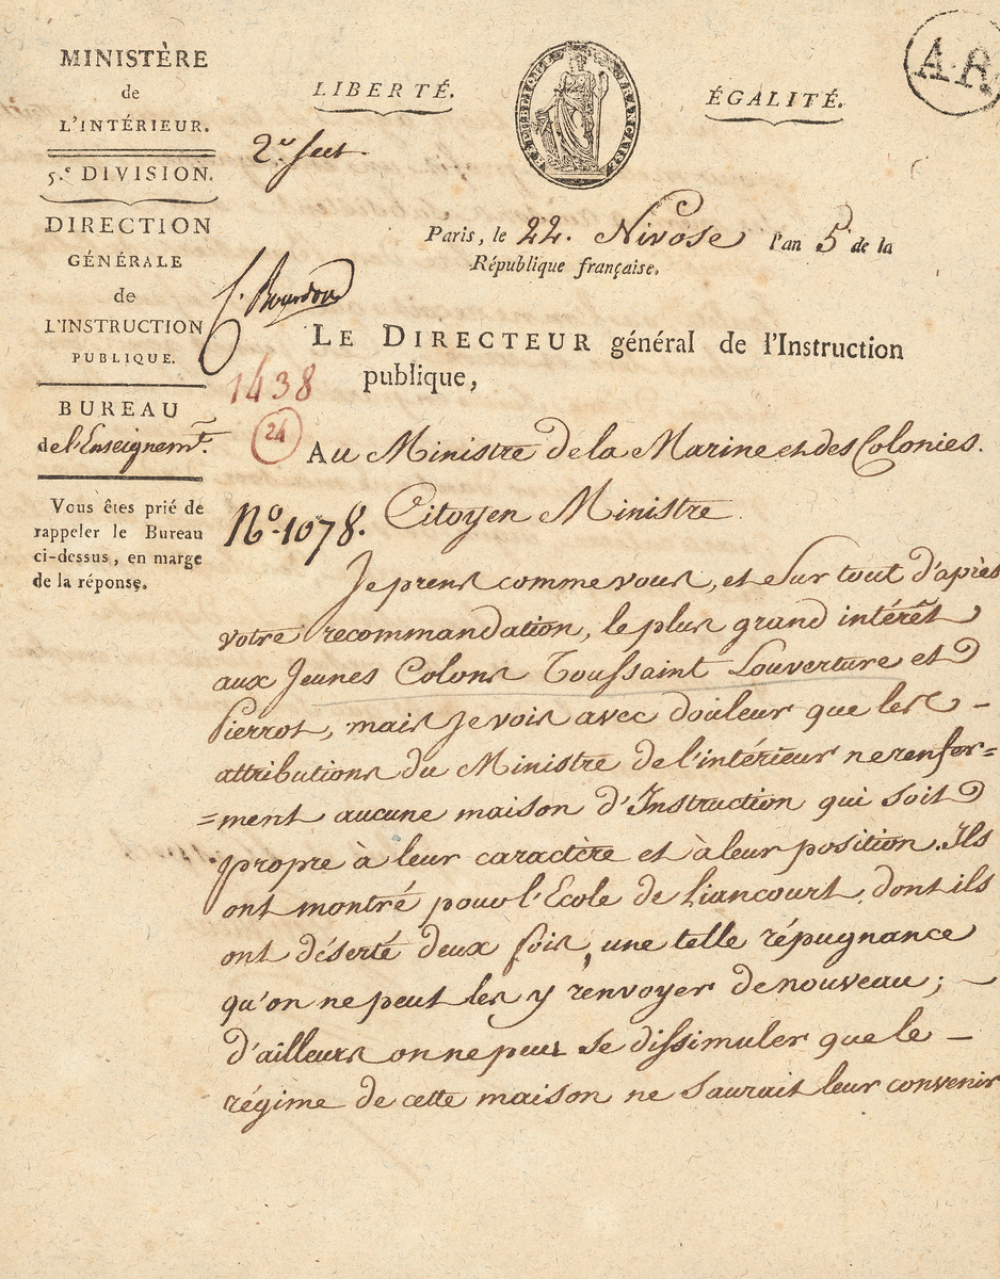 MINISTÈRE
de
L'INTÉRIEUR.
5.e DIVISION.
DIRECTION
GÉNÉRALE
de
L'INSTRUCTION
PUBLIQUE.
BUREAU
de l'Enseignemt.
Vous êtes prié de
rappeler le Bureau
ci-dessus, en marge
de la réponse.
LIBERTÉ.
RÉPUBLIQUE FRANÇAISE
ÉGALITÉ.
A.R
2e Sect.
Paris, le 22. Nivose l'an 5 de la
République française.
C. Bourdon
LE DIRECTEUR général de l'Instruction
publique,
1438
24
Au Ministre de la Marine et des Colonies.
No. 1078. Citoyen Ministre
Je prens comme vous, et Sur tout d'après
votre recommandation, le plus grand intérêt
aux Jeunes Colons Toussaint Louverture et
Pierrot, mais Je vois avec douleur que les –
attributions du Ministre de l'intérieur ne renfer=
=ment aucune maison d'Instruction qui soit
propre à leur caractère et à leur position. Ils
ont montré pour l'Ecole de Liancourt, dont ils
ont déserté deux fois, une telle répugnance
qu'on ne peut les y renvoyer de nouveau; –
d'ailleurs on ne peut se dissimuler que le –
régime de cette maison ne saurait leur convenir